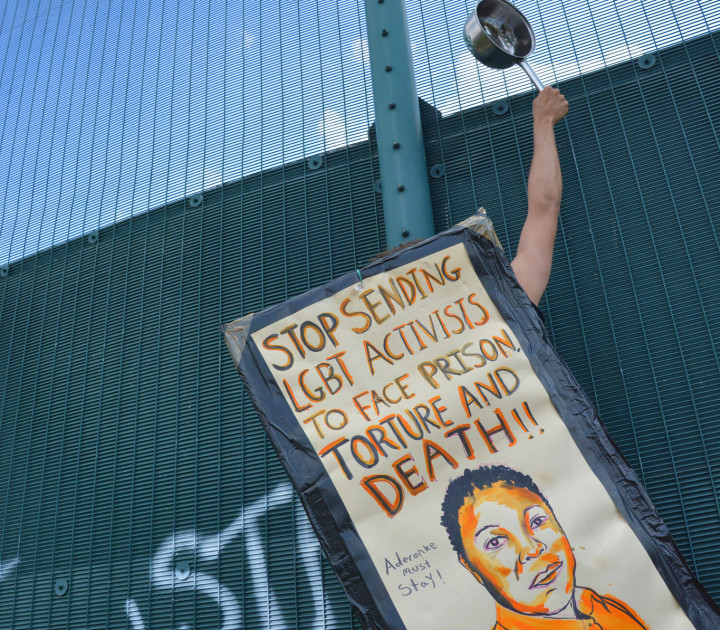 STOP SENDING
LGBT ACTIVISTS
TO FACE PRISON,
TORTURE AND
DEATH!!
Aderonke
must
Stay!
ST